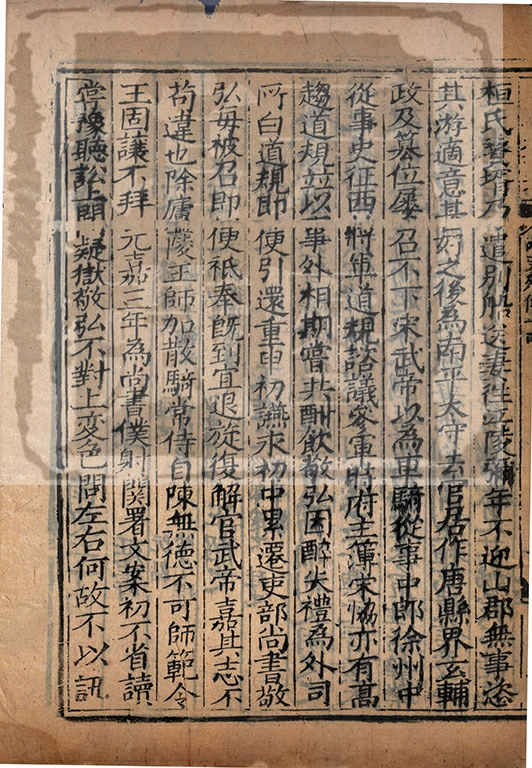 桓氏贅壻乃遣別船送妻往江陵彌年不迎山郡無事恣
其游適意甚好之後為南平太守去官居作唐縣界玄輔
政及篡位屢召不下宋武帝以為車騎從事中郎徐州中
從事史征西將軍道規諮議叅軍時府主簿宋恊亦有高
趨道規並以事外相期嘗共酣飲敬弘因醉失禮為外司
所白道規即便引還重申初讌永初中累遷吏部尚書敬
弘毋被召即便祗奉既到宜退旋復解官武帝嘉其志不
苟違也除廬陵王師加散騎常侍自陳無德不可師範令
王固讓不拜元嘉三年為尚書僕射関署文案初不省讀
嘗豫聽訟上問疑獄敬弘不對上変色問左右何故不以訊